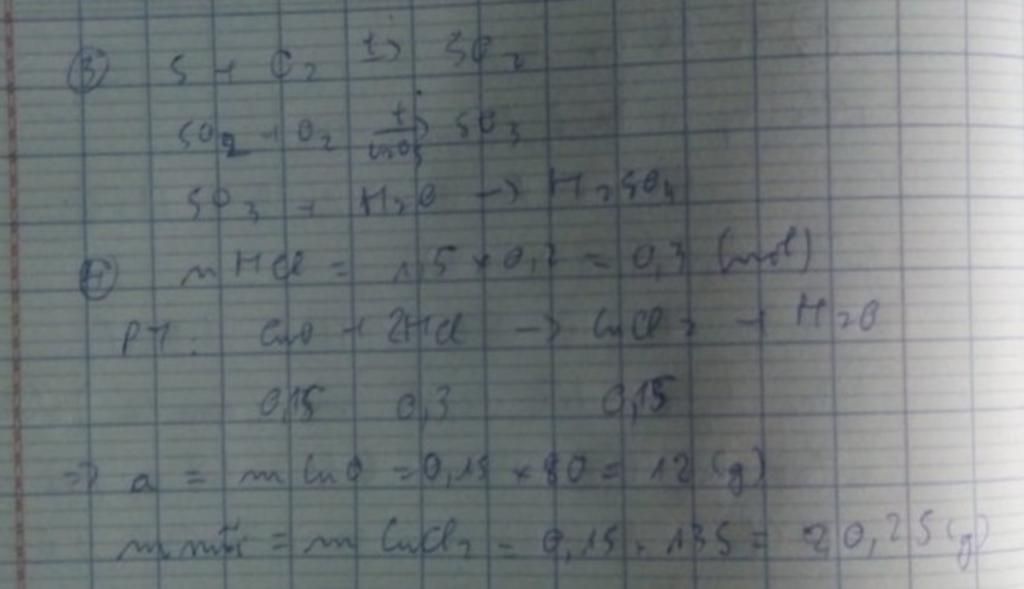 ③ S + O₂ t°→ SO₂
SO₂ + O₂ t°→ V₂O₅ SO₃
SO₃ + H₂O → H₂SO₄
④ nHCl = 1,5 × 0,2 = 0,3 (mol)
PT: CuO + 2HCl → CuCl₂ + H₂O
0,15 0,3 0,15
=> a = mCuO = 0,15 × 80 = 12 (g)
m muối = m CuCl₂ = 0,15 . 135 = 20,25 (g)